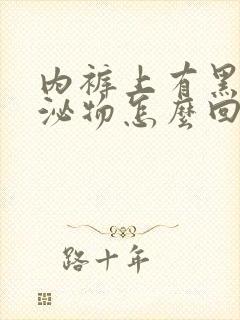 内裤上有黑
泌物怎麼回
路十年